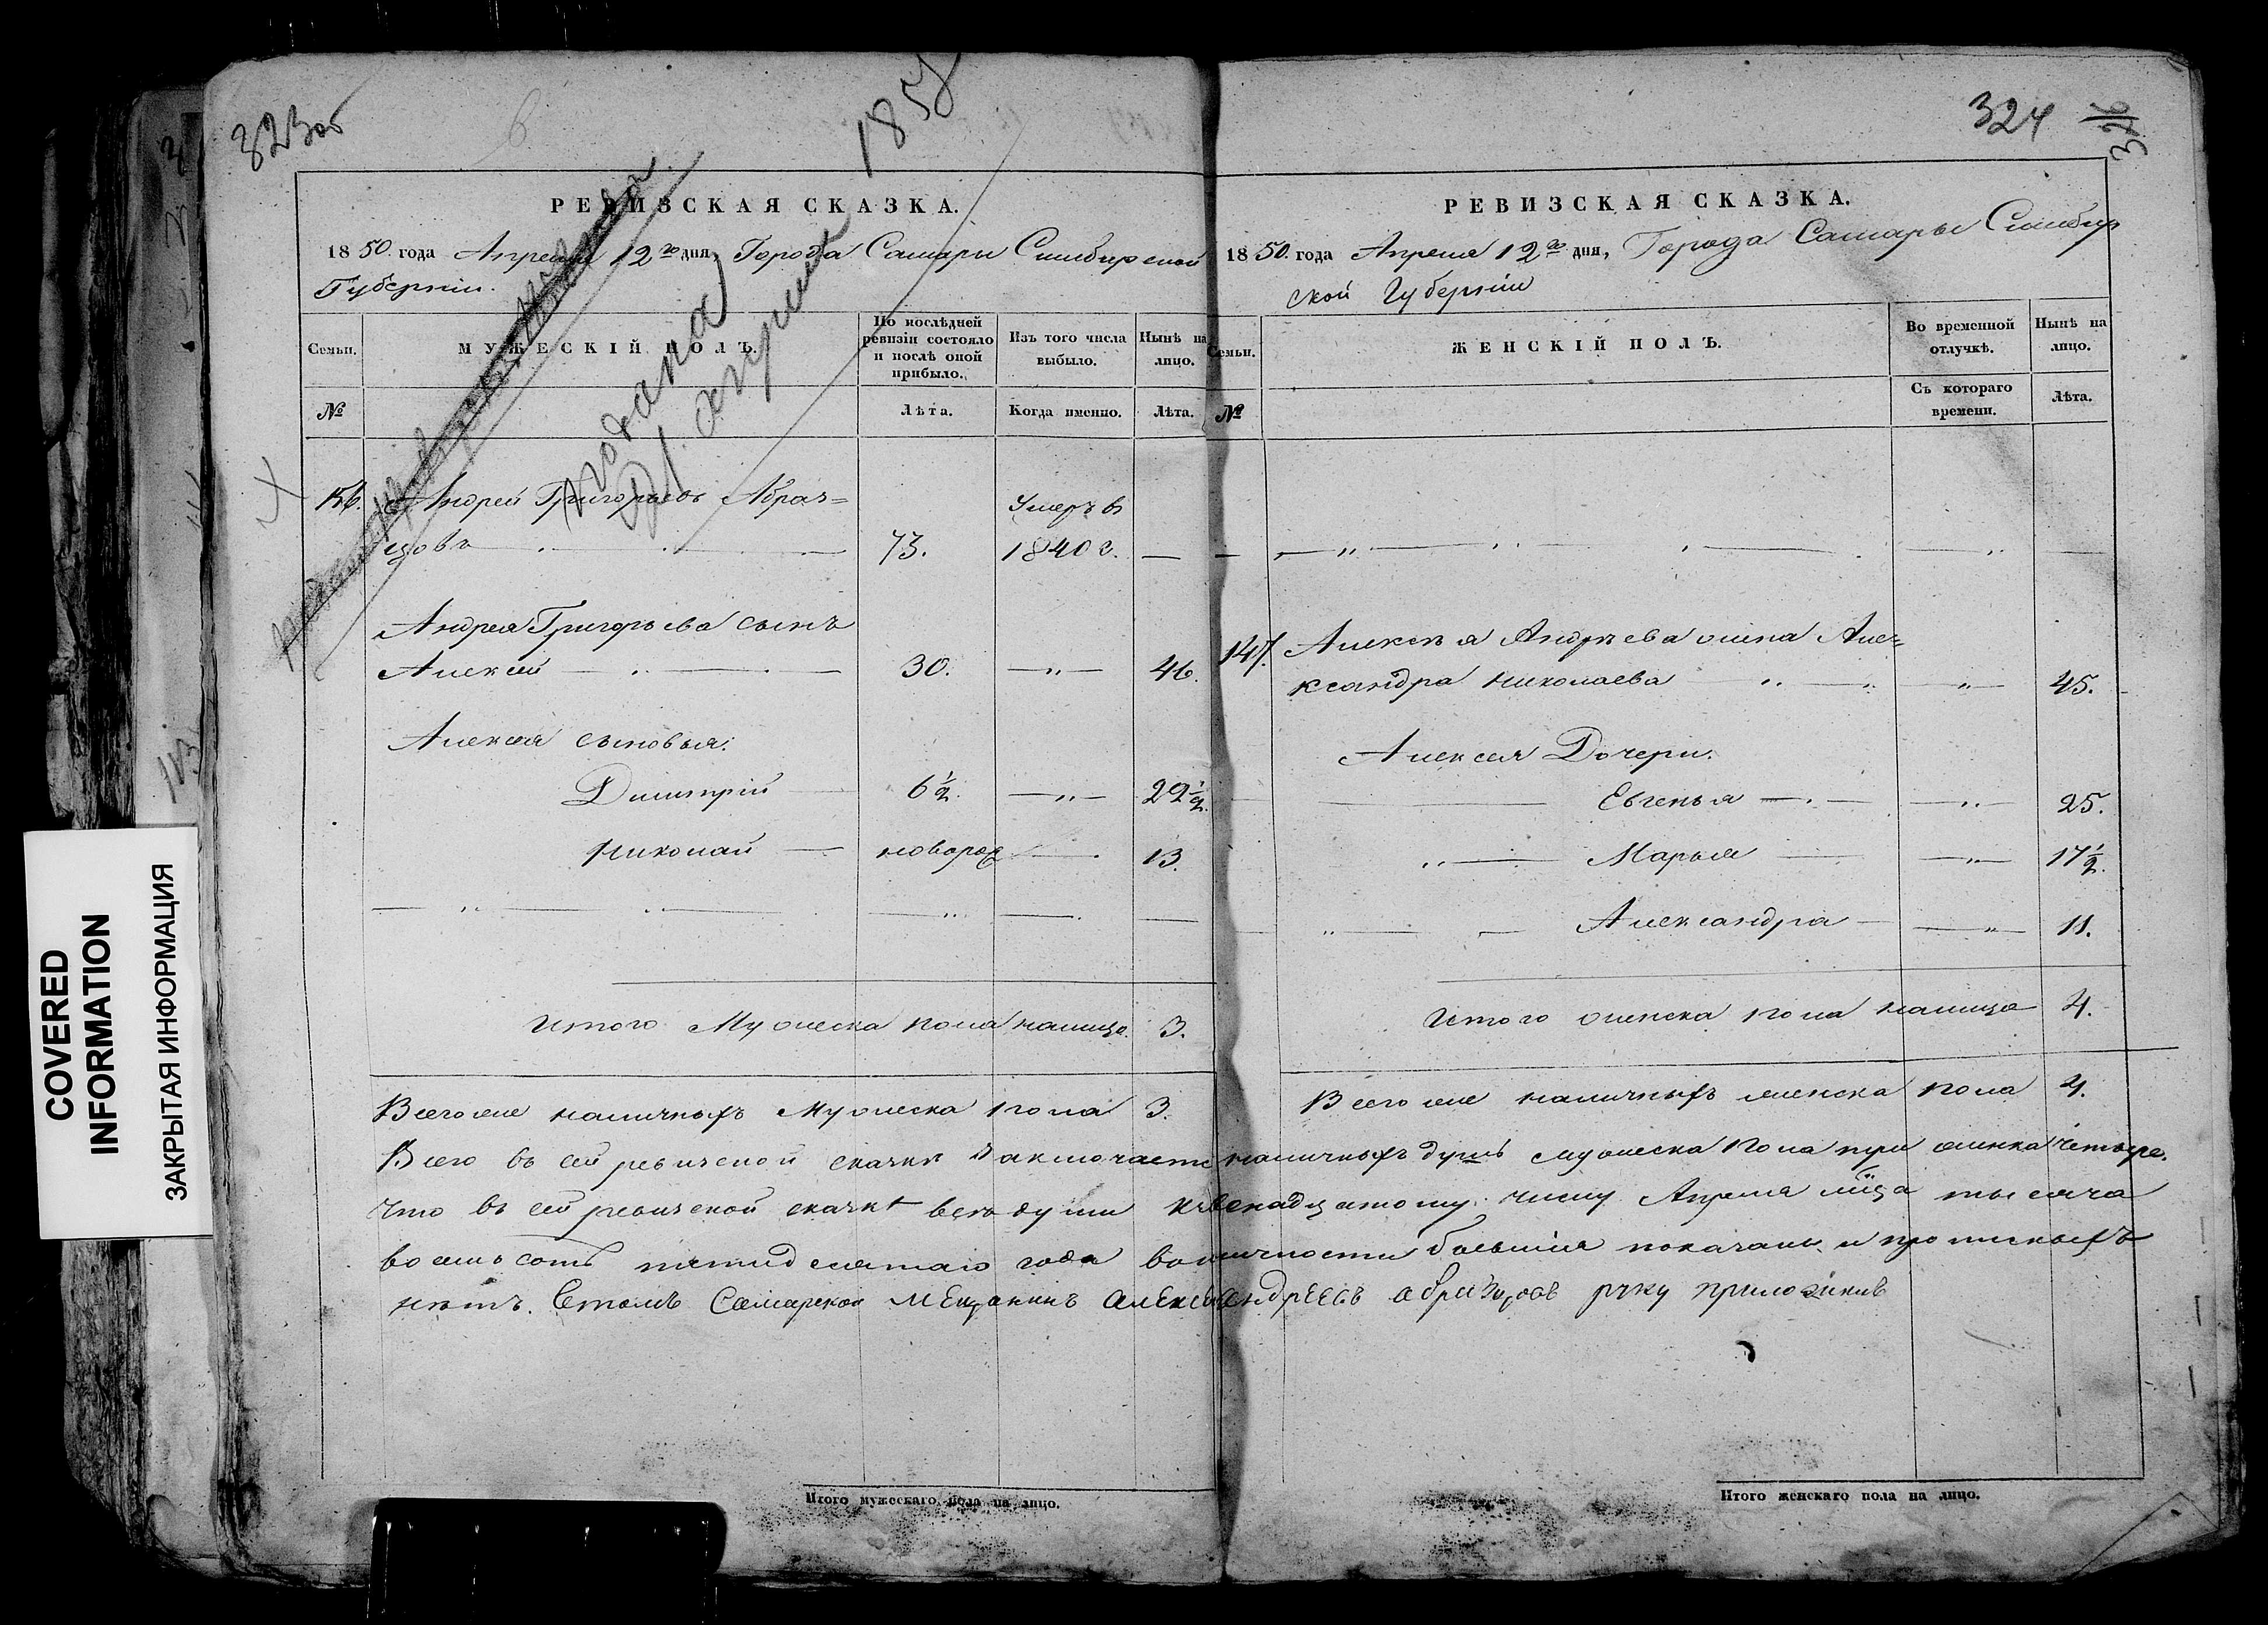 323об
1858
324
326
РЕВИЗСКАЯ СКАЗКА.
1850 года Апреля 12го дня, Города Самары Симбирской
Губерніи.
Семьи.
МУЖЕСКІЙ ПОЛЪ.
По послѣдней ревизіи состояло и послѣ оной прибыло.
Изъ того числа выбыло.
Нынѣ на лицо.
№
Лѣта.
Когда именно.
Лѣта.
подана
Андрей Григорьевъ Абраз=
цовъ 73. Умеръ въ 1840 г.
Андрея Григорьева сынъ
Алексей 30. 46.
Алексея сыновья:
Димитрій 6½. 22½.
Николай новорож 13.
Итого Мужеска пола налицо 3.
Всего же наличныхъ Мужеска пола 3.
РЕВИЗСКАЯ СКАЗКА.
1850 года Апреля 12го дня, Города Самары Симбир
ской Губерніи
Семьи.
ЖЕНСКІЙ ПОЛЪ.
Во временной отлучкѣ.
Нынѣ на лицо.
№
Съ котораго времени.
Лѣта.
147. Алексѣя Андрѣева жена Але=
ксандра Николаева 45.
Алексея Дочери:
Евгенья 25.
Марья 17½.
Александра 11.
Итого женска пола налицо 4.
Всего же наличныхъ женска пола 4.
Всего въ сей ревизской сказкѣ заключаетъ наличныхъ душъ мужеска пола три женска четыре.
Что въ сей ревизской сказкѣ всѣ души Апреля мца тысяча
восемь сотъ пятидесятаго года показаны и прописныхъ
нѣтъ. Самарской мещанинъ алексей андреевъ абразцовъ руку приложилъ
Итого мужескаго пола на лицо.
Итого женскаго пола на лицо.
COVERED
INFORMATION
ЗАКРЫТАЯ ИНФОРМАЦИЯ